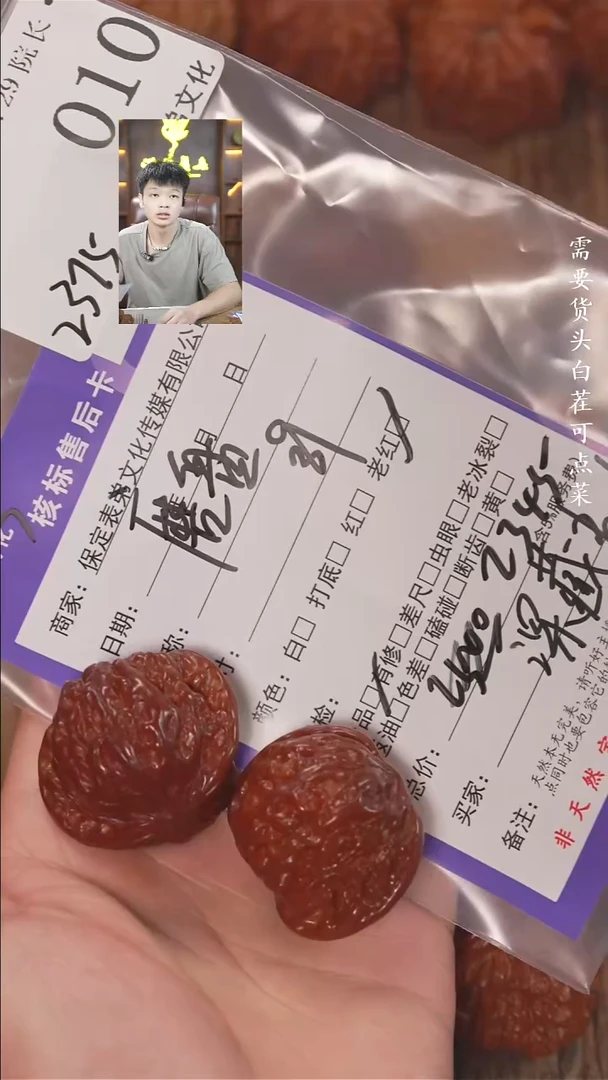 29 院长
010
文化
2375
需要货头白茬可点菜
核标售后卡
商家：保定表弟文化传媒有限公
日期： 月 日
磨盘
称：
寸： 39
颜色：白□ 打底□ 红□ 老红☑
检：
品□有修□差尺□虫眼□老冰裂□
返油□色差□磕碰□断齿□黄□
总价： 2345
买家：
备注：
天然本无完美，请听好主
点同时也要包容它的
非天然